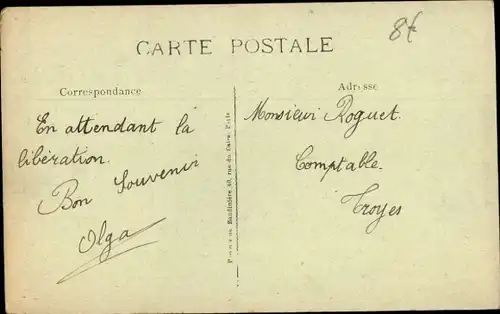 8f
CARTE POSTALE
Correspondance
Adresse
En attendant la
libération.
Bon Souvenir
Olga
Monsieur Roguet.
Comptable.
Troyes